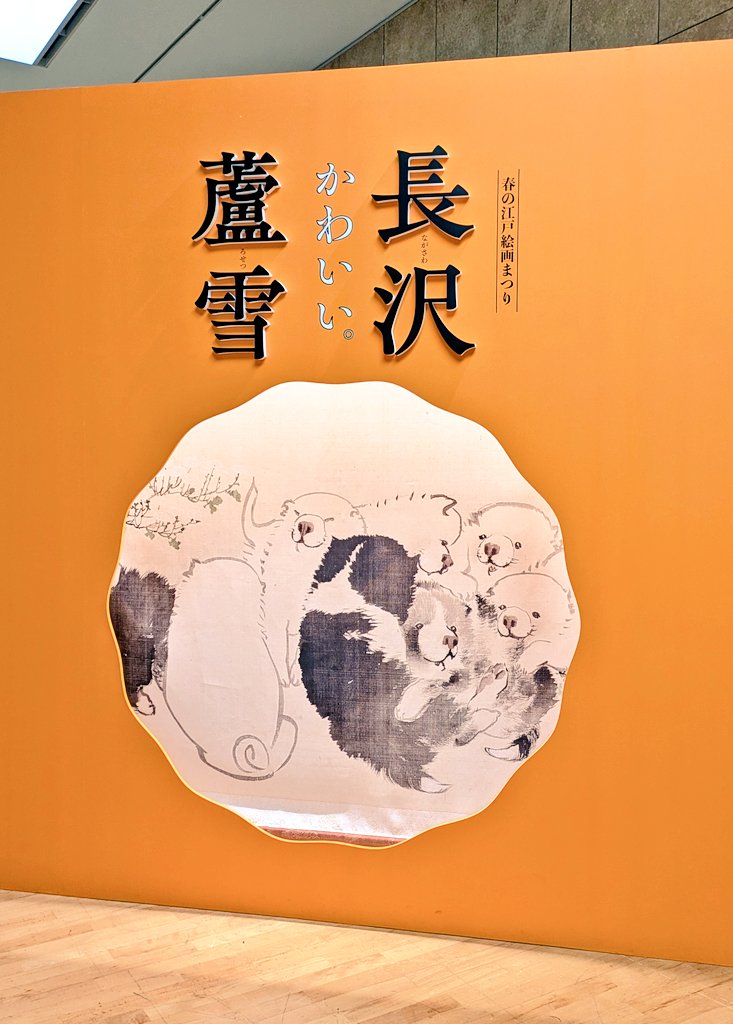 春の江戸絵画まつり
長沢
ながさわ
かわいい。
蘆雪
ろせつ